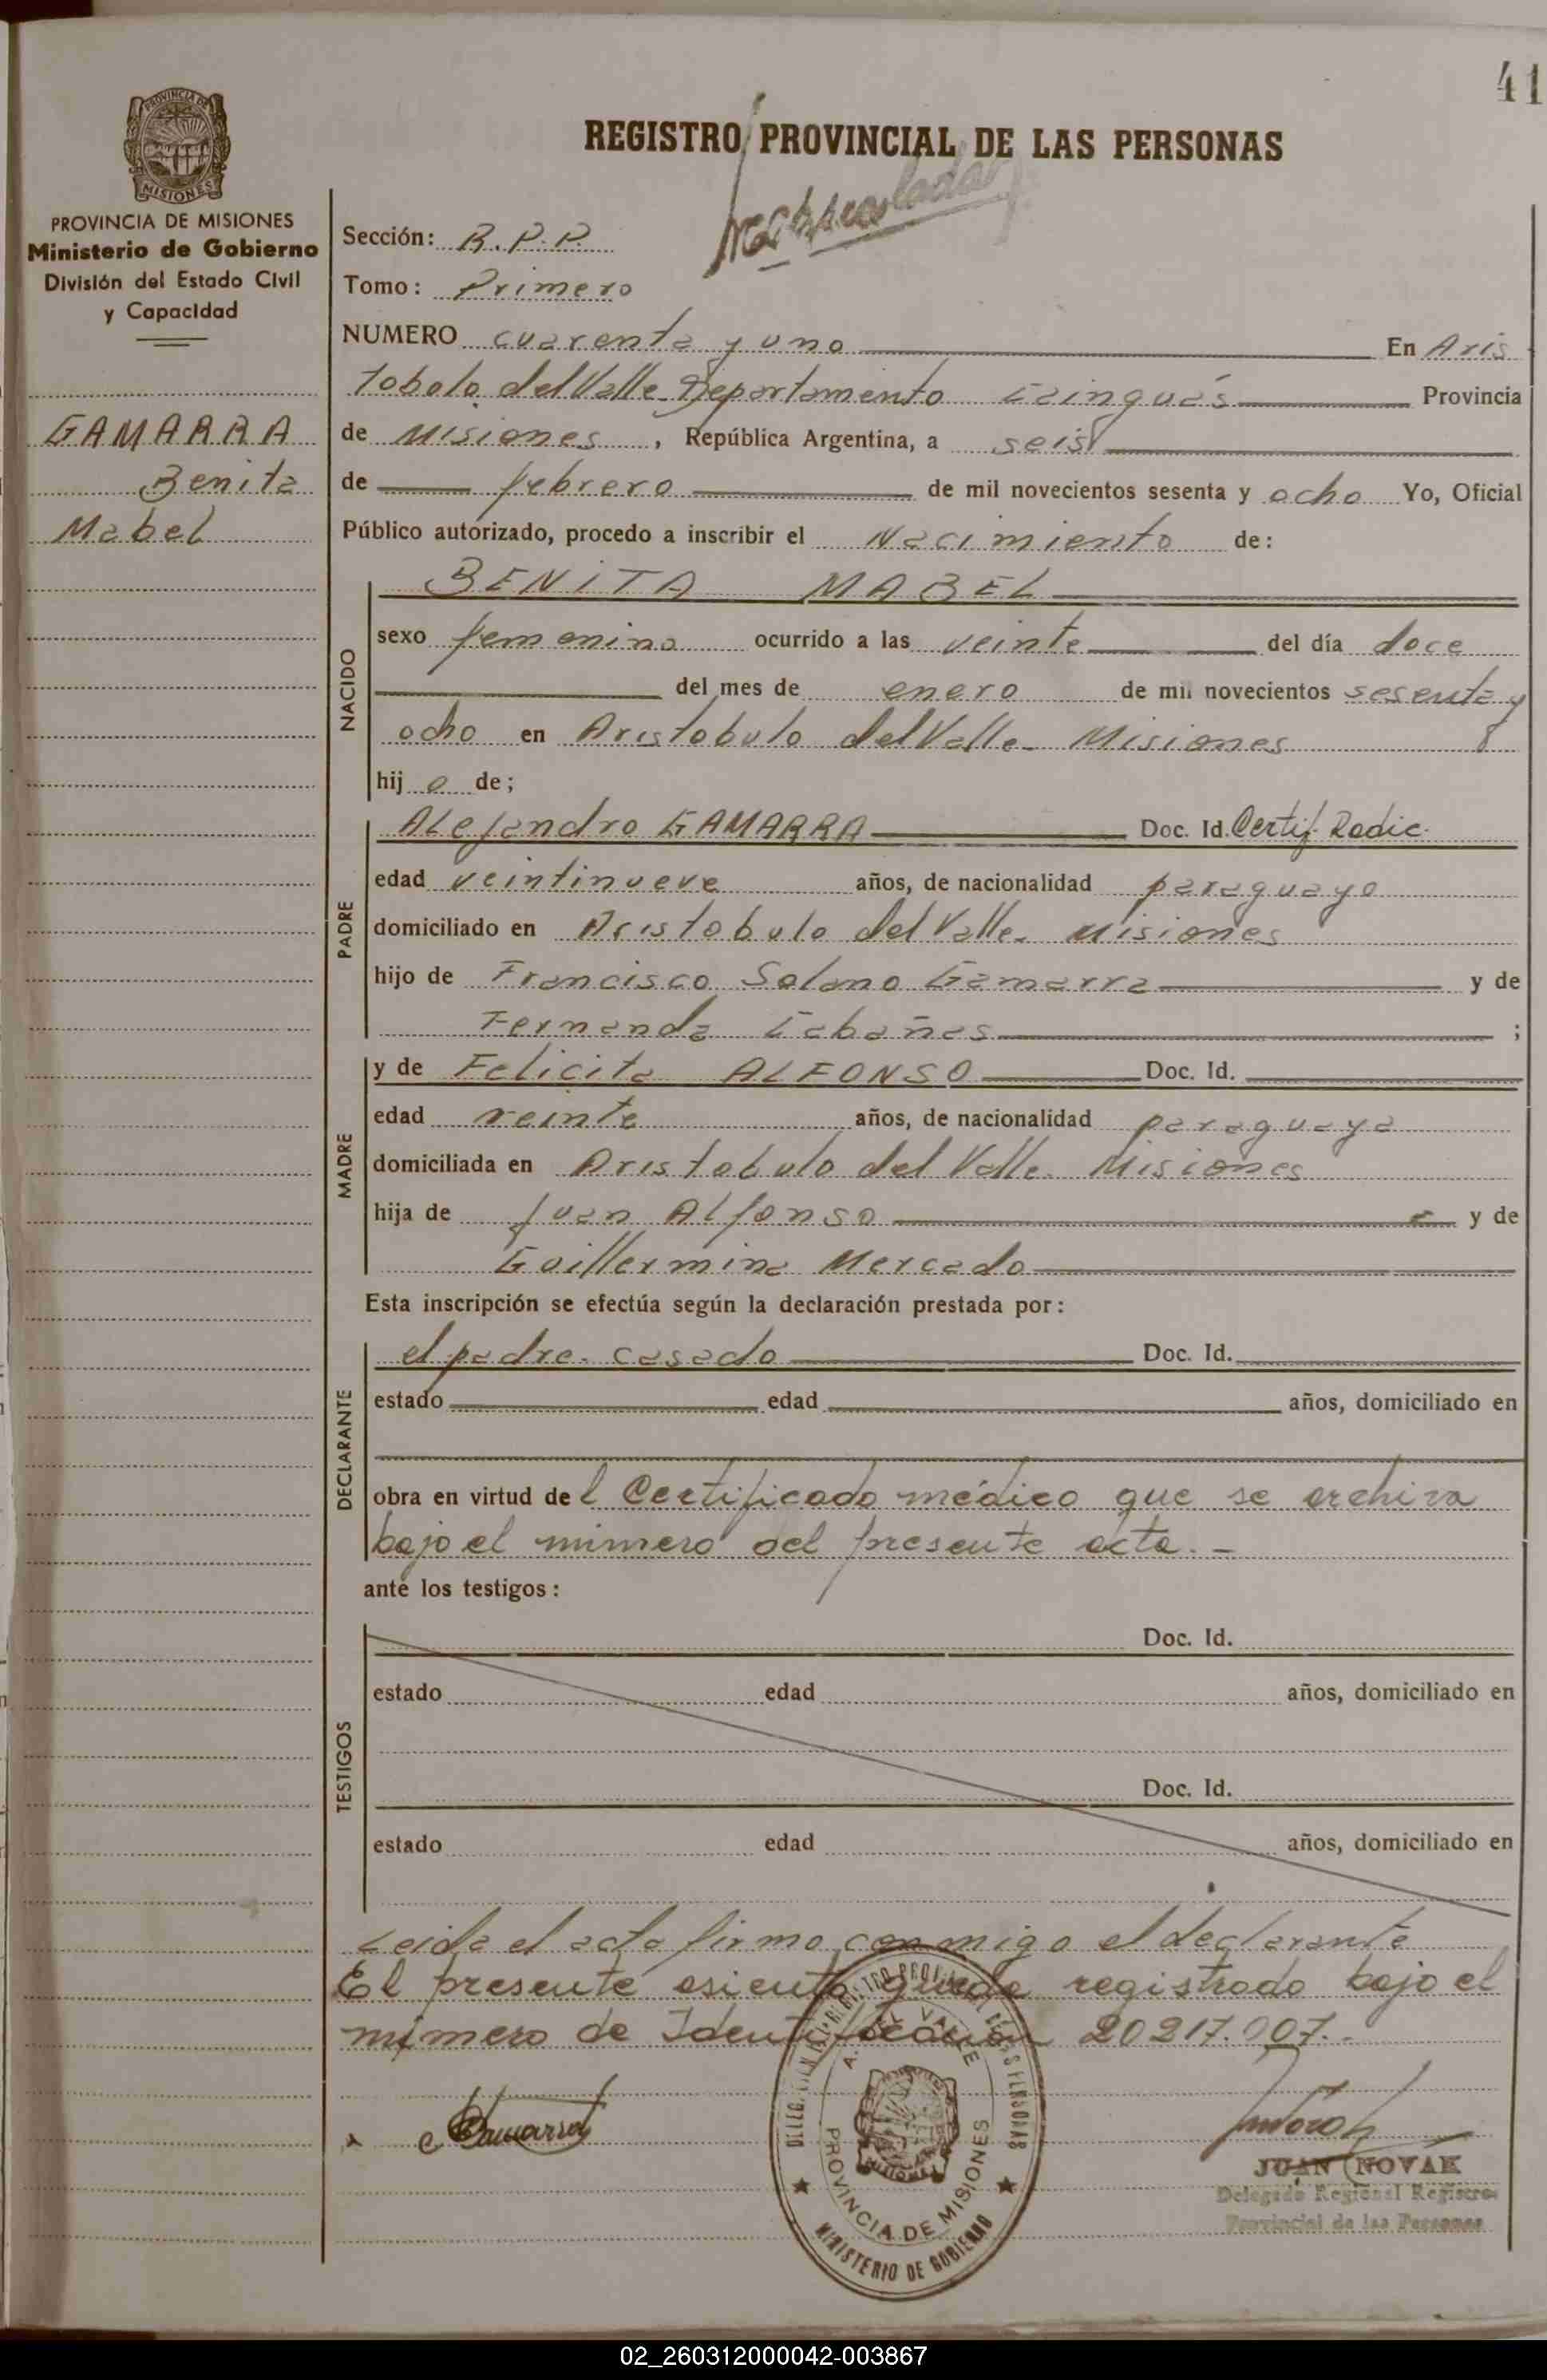 41
REGISTRO PROVINCIAL DE LAS PERSONAS
PROVINCIA DE MISIONES
MISIONES
PROVINCIA DE MISIONES
Ministerio de Gobierno
División del Estado Civil
y Capacidad
GAMARRA
Benita
Mabel
Sección: R.P.P.
Tomo: Primero
NUMERO cuarenta y uno En Aris
tobolo del Valle Departamento Cainguás Provincia
de Misiones, República Argentina, a seis
de febrero de mil novecientos sesenta y ocho Yo, Oficial
Público autorizado, procedo a inscribir el Nacimiento de:
NACIDO
BENITA MABEL
sexo femenino ocurrido a las veinte del día doce
del mes de enero de mil novecientos sesenta y
ocho en Aristobulo del Valle - Misiones
hij a de;
PADRE
Alejandro GAMARRA Doc. Id. Certif. Radic.
edad veintinueve años, de nacionalidad paraguayo
domiciliado en Aristobulo del Valle - Misiones
hijo de Francisco Solano Gamarra y de
Fernanda Cabañas ;
MADRE
y de Felicita ALFONSO Doc. Id.
edad veinte años, de nacionalidad paraguaya
domiciliada en Aristobulo del Valle - Misiones
hija de Juan Alfonso y de
Guillermina Mercado
Esta inscripción se efectúa según la declaración prestada por:
DECLARANTE
el padre - casado Doc. Id.
estado edad años, domiciliado en
obra en virtud de l Certificado médico que se archiva
bajo el número del presente acta. -
ante los testigos:
TESTIGOS
Doc. Id.
estado edad años, domiciliado en
Doc. Id.
estado edad años, domiciliado en
Leida el acta firmo conmigo el declarante
El presente asiento queda registrado bajo el
número de Identificación 20217.007.-
A. DEL VALLE
PROVINCIA DE MISIONES
MINISTERIO DE GOBIERNO
Gamarra
JUAN NOVAK
Delegado Regional Registro
Provincial de las Personas
02_260312000042-003867